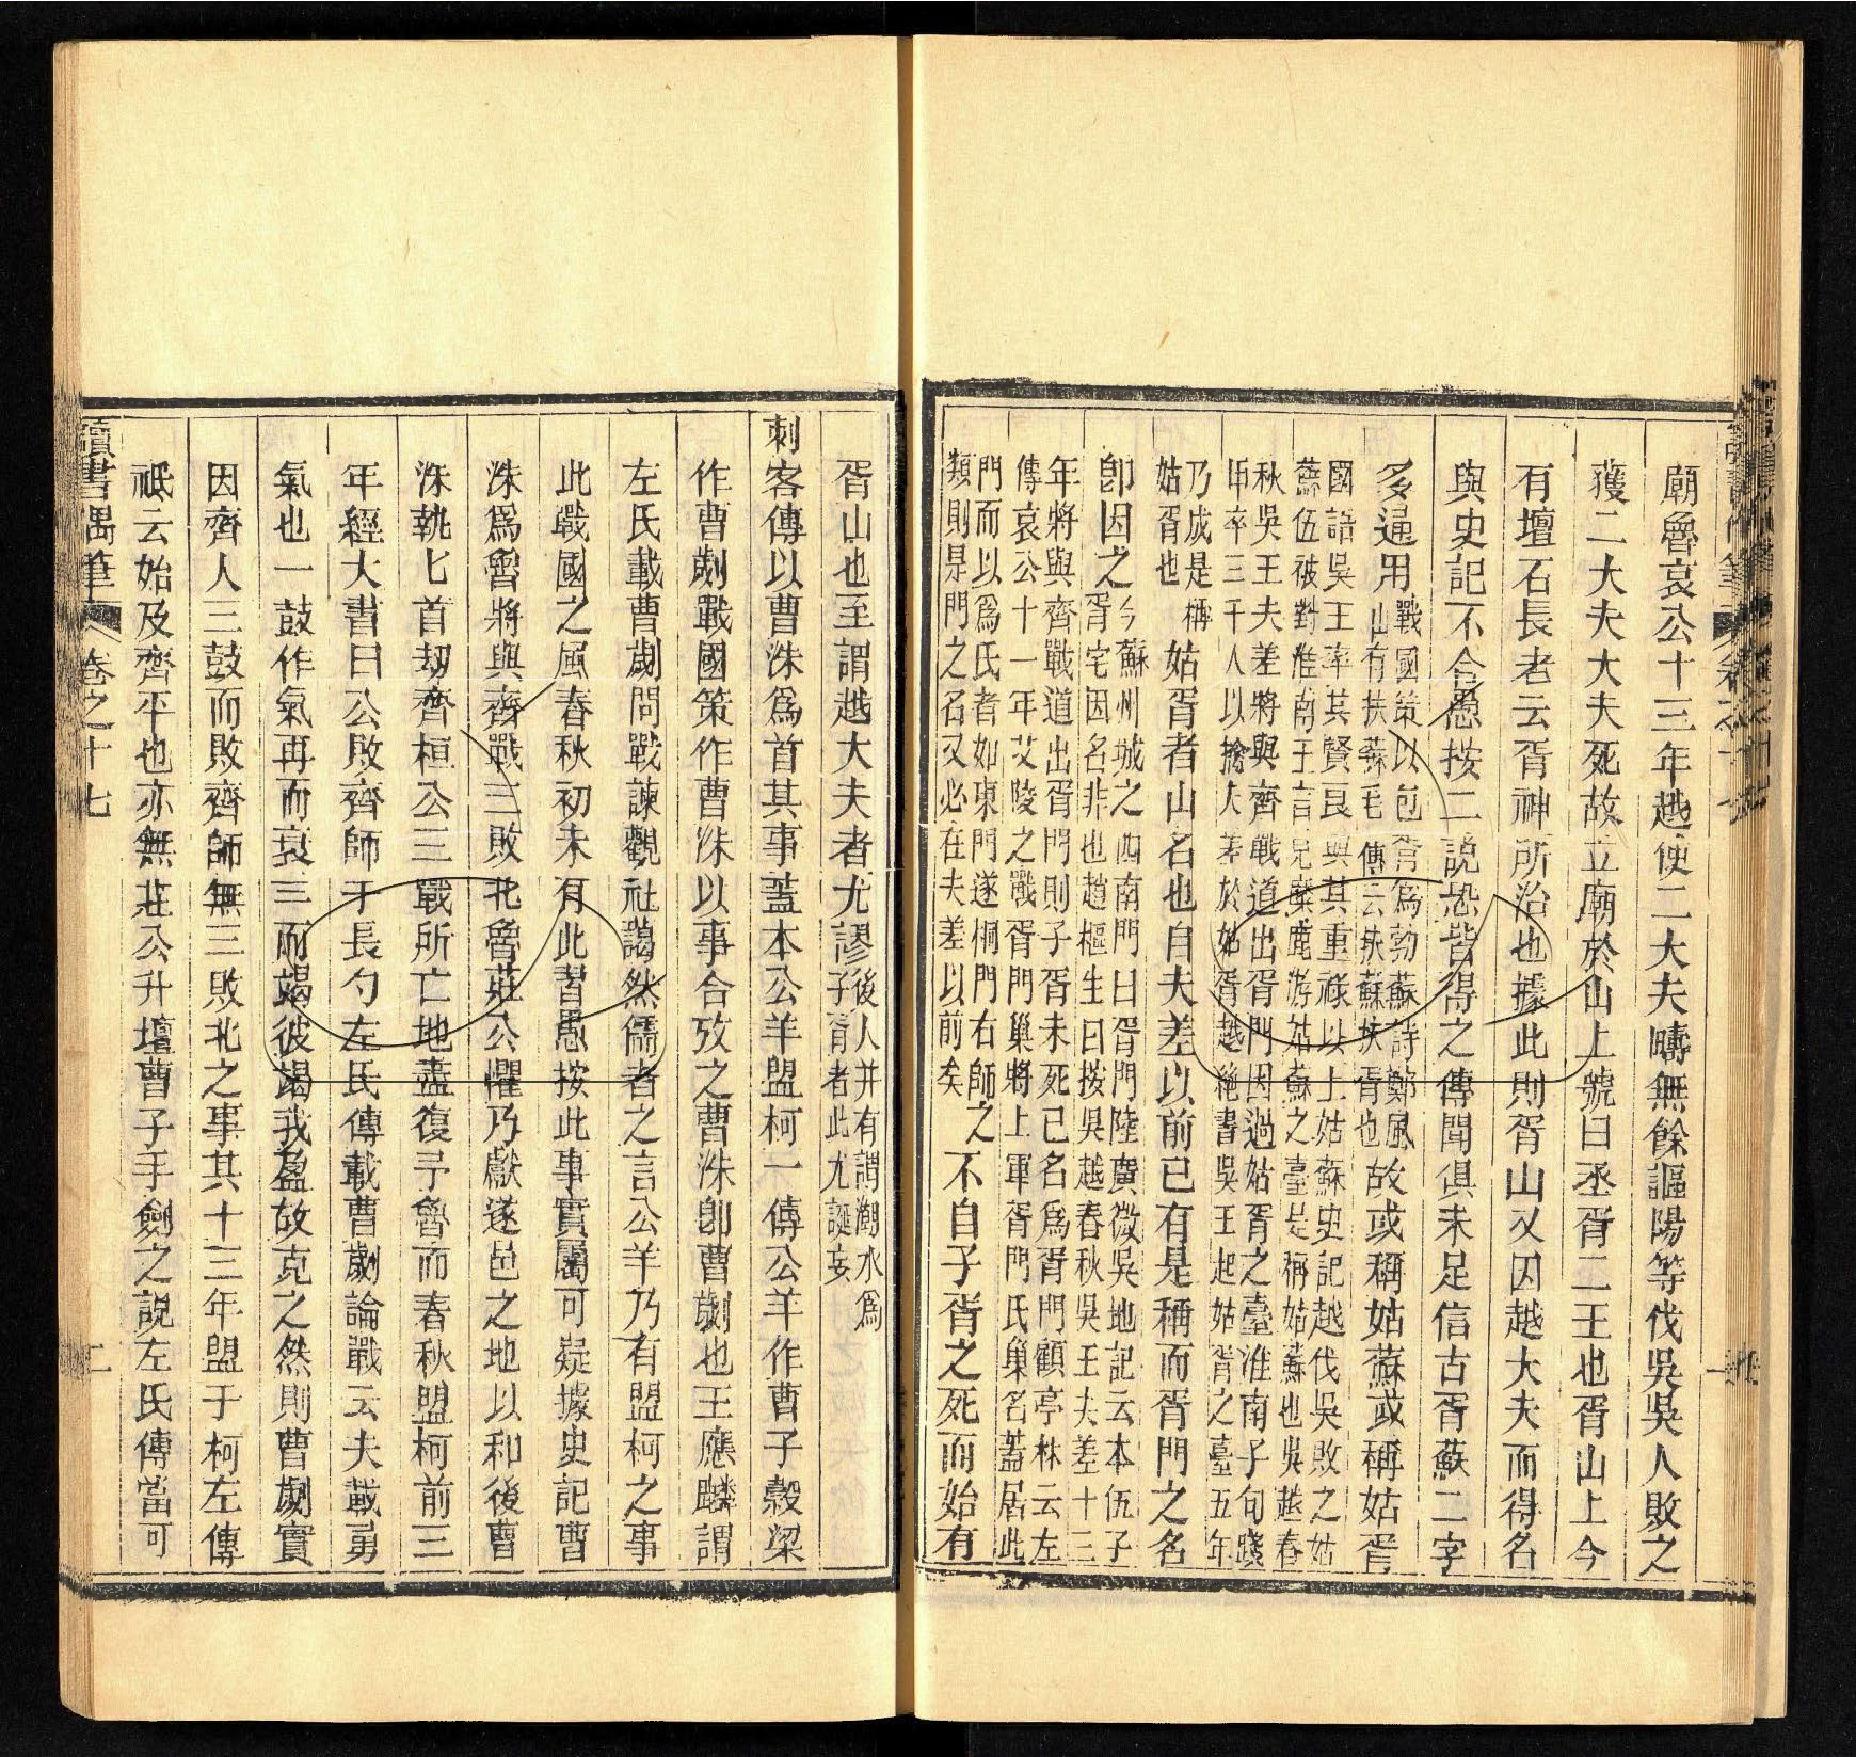 廟魯哀公十三年越使二大夫疇無餘謳陽等伐吳吳人敗之
獲二大夫大夫死故立廟於山上號曰丞胥二王也胥山上今
有壇石長老云胥神所治也據此則胥山又因越大夫而得名
與史記不合愚按二說恐皆得之傳聞俱未足信古胥蘇二字
多通用戰國策以包胥爲勃蘇詩鄭風
山有扶蘇毛傳云扶蘇扶胥也故或稱姑蘇或稱姑胥
國語吳王率其賢良與其重祿以上姑蘇史記越伐吳敗之姑
蘇伍被對淮南王言見麋鹿游姑蘇之臺是稱姑蘇也吳越春
秋吳王夫差將與齊戰道出胥門因過姑胥之臺淮南子句踐
甲卒三千人以擒夫差於姑胥越絕書吳王起姑胥之臺五年
乃成是稱
姑胥也姑胥者山名也自夫差以前已有是稱而胥門之名
卽因之今蘇州城之西南門曰胥門陸廣微吳地記云本伍子
胥宅因名非也趙樞生曰按吳越春秋吳王夫差十三
年將與齊戰道出胥門則子胥未死已名爲胥門顧亭林云左
傳哀公十一年艾陵之戰胥門巢將上軍胥門氏巢名蓋居此
門而以爲氏者如東門遂桐門右師之
類則是門之名又必在夫差以前矣不自子胥之死而始有
胥山也至謂越大夫者尤謬後人并有謂潮水爲
子胥者此尤誕妄
刺客傳以曹沬爲首其事蓋本公羊盟柯一傳公羊作曹子穀梁
作曹劌戰國策作曹沬以事合攷之曹沬卽曹劌也王應麟謂
左氏載曹劌問戰諫觀社藹然儒者之言公羊乃有盟柯之事
此戰國之風春秋初未有此習愚按此事實屬可疑據史記曹
沬爲魯將與齊戰三敗北魯莊公懼乃獻遂邑之地以和後曹
沬執匕首刼齊桓公三戰所亡地盡復予魯而春秋盟柯前三
年經大書曰公敗齊師于長勺左氏傳載曹劌論戰云夫戰勇
氣也一鼓作氣再而衰三而竭彼竭我盈故克之然則曹劌實
因齊人三鼓而敗齊師無三敗北之事其十三年盟于柯左傳
祗云始及齊平也亦無莊公升壇曹子手劍之說左氏傳當可
讀書偶筆 卷之十七 二